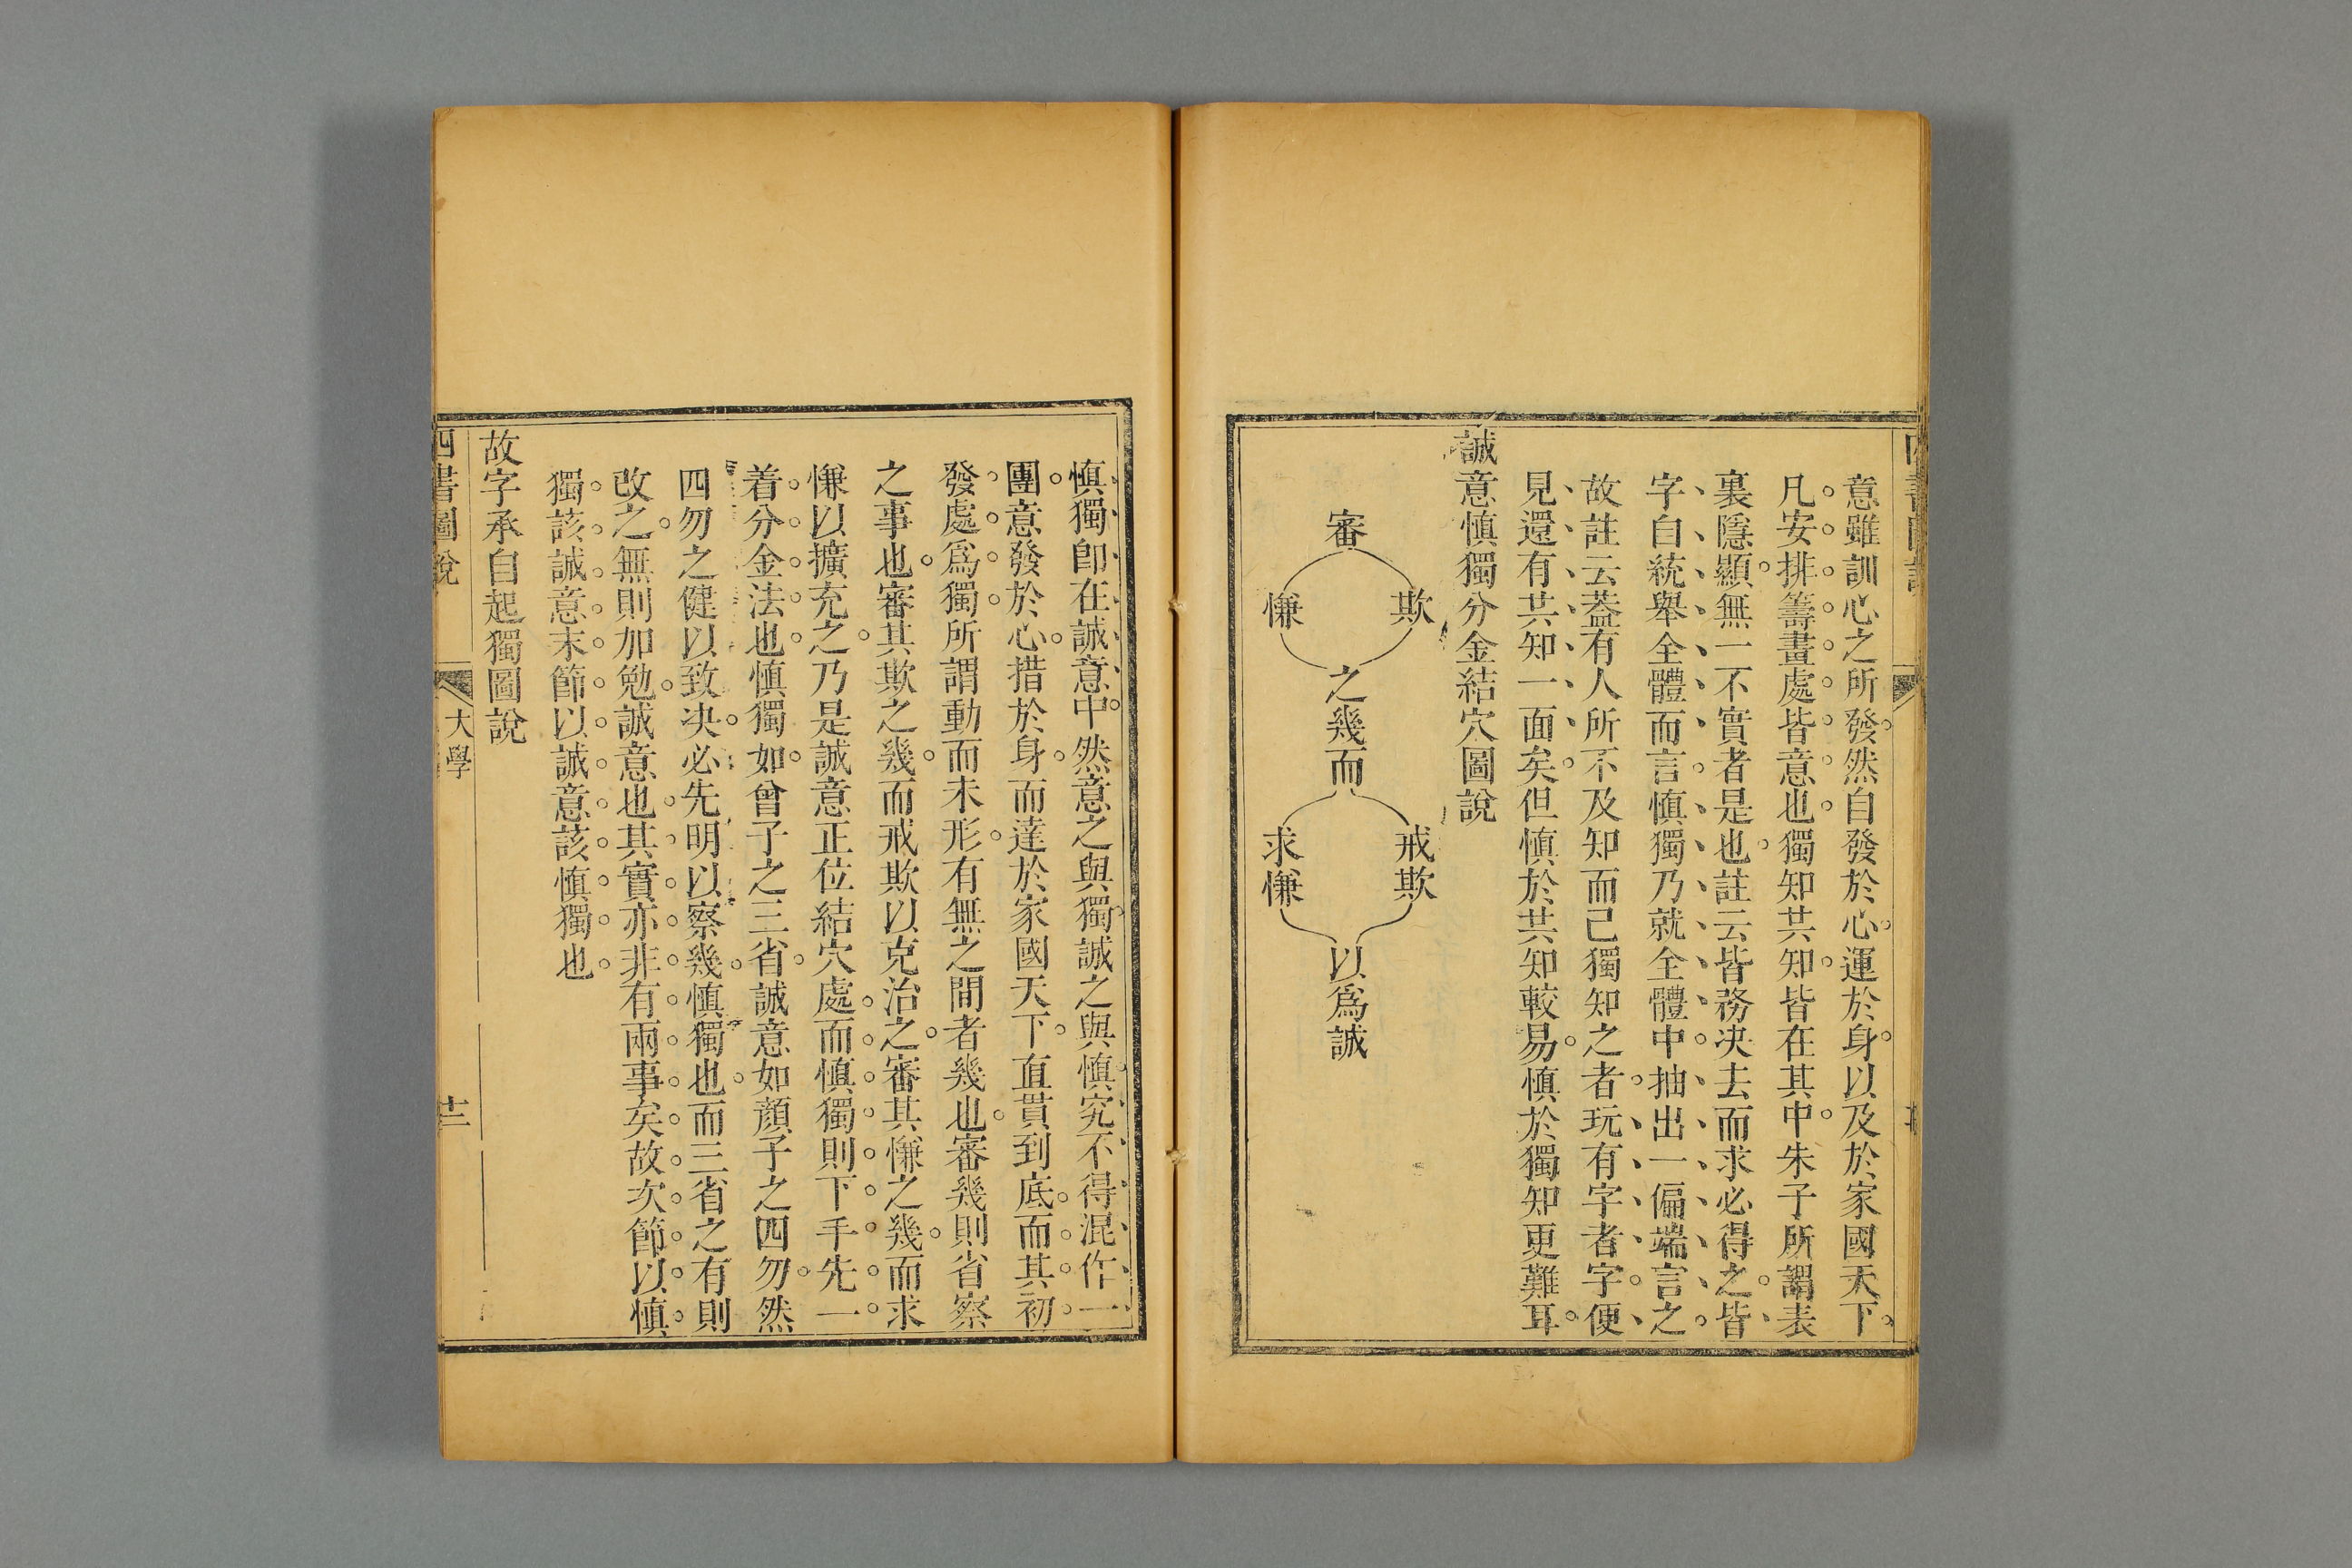 意雖訓心之所發然自發於心運於身以及於家國天下
凡安排籌畫處皆意也獨知共知皆在其中朱子所謂表
裏隱顯無一不實者是也註云皆務決去而求必得之皆
字自統舉全體而言慎獨乃就全體中抽出一偏端言之
故註云葢有人所不及知而己獨知之者玩有字者字便
見還有共知一面矣但慎於共知較易慎於獨知更難耳
誠意慎獨分金結穴圖說
審
欺
慊
之幾而
戒欺
求慊
以爲誠
慎獨卽在誠意中然意之與獨誠之與慎究不得混作一
團意發於心措於身而達於家國天下直貫到底而其初
發處爲獨所謂動而未形有無之間者幾也審幾則省察
之事也審其欺之幾而戒欺以克治之審其慊之幾而求
慊以擴充之乃是誠意正位結穴處而慎獨則下手先一
着分金法也慎獨如曾子之三省誠意如顏子之四勿然
四勿之健以致決必先明以察幾慎獨也而三省之有則
改之無則加勉誠意也其實亦非有兩事矣故次節以慎
獨該誠意末節以誠意該慎獨也
故字承自起獨圖說
四書圖說
大學
十二